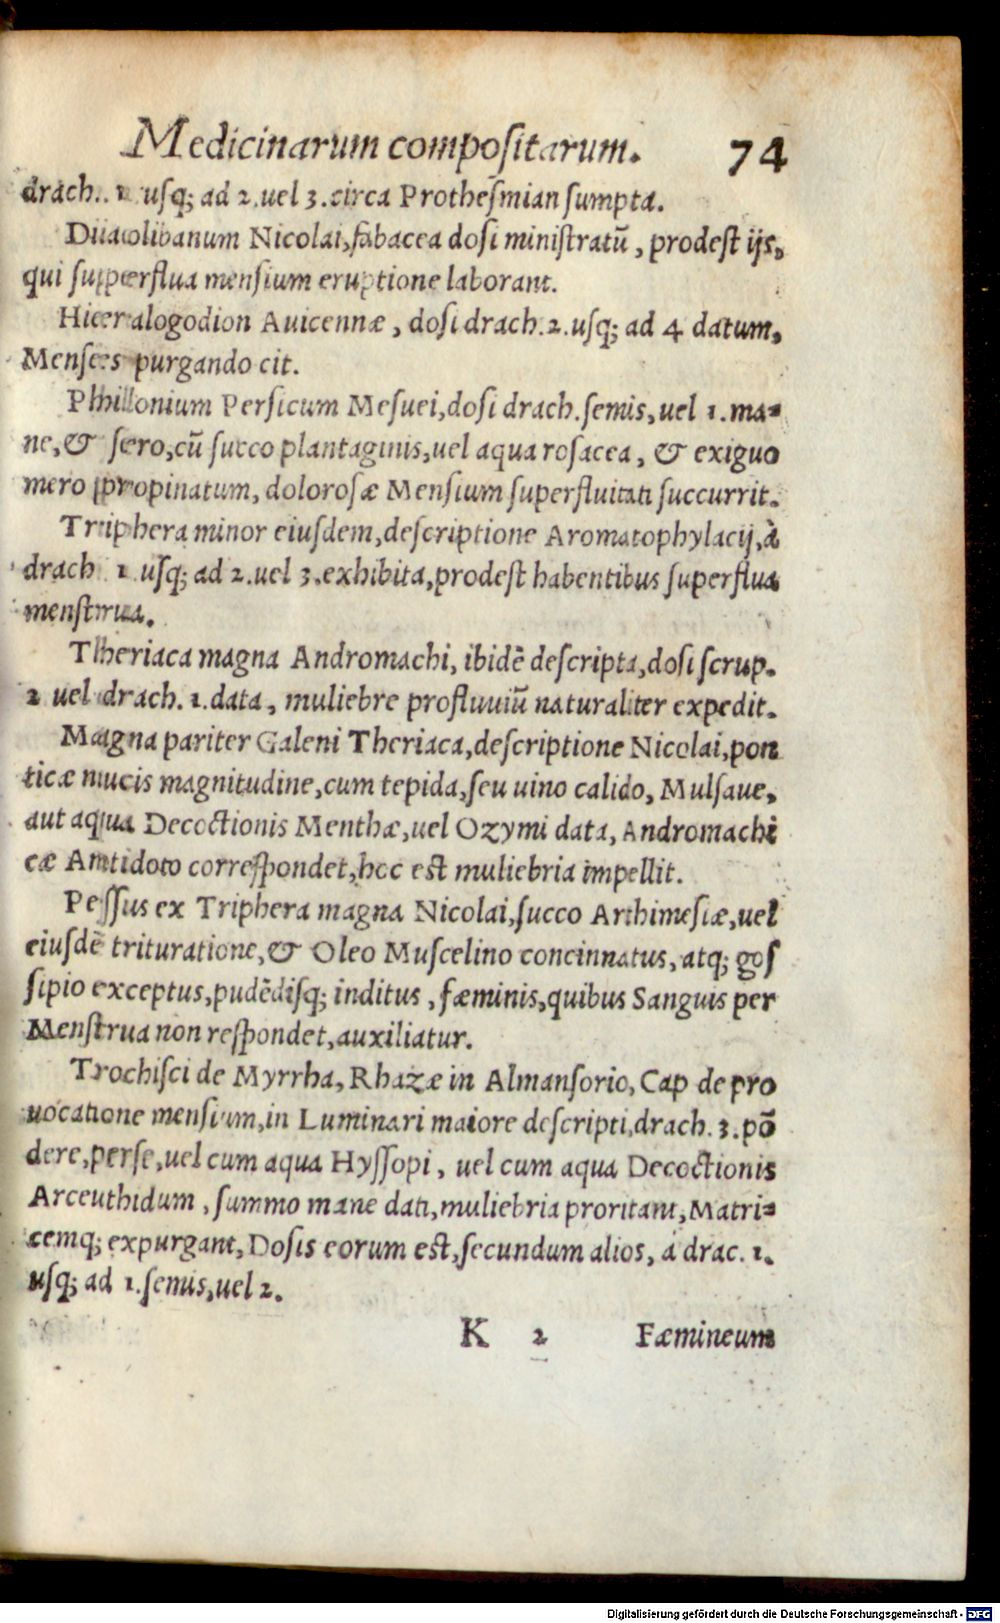 Medicinarum compositarum. 74
drach. 1 usq; ad 2. vel 3. circa Prothesmian sumpta.
Diaolibanum Nicolai, fabacea dosi ministratū, prodest ijs,
qui superflua mensium eruptione laborant.
Hieralogodion Auicennæ, dosi drach. 2. usq; ad 4 datum,
Menses purgando cit.
Philonium Persicum Mesuei, dosi drach. semis, uel 1. ma=
ne, & sero, cū succo plantaginis, uel aqua rosacea, & exiguo
mero propinatum, dolorosæ Mensium superfluitati succurrit.
Triphera minor eiusdem, descriptione Aromatophylacij, à
drach 1. usq; ad 2. uel 3. exhibita, prodest habentibus superflua
menstrua.
Theriaca magna Andromachi, ibidē descripta, dosi scrup.
2 uel drach. 1. data, muliebre profluuiū naturaliter expedit.
Magna pariter Galeni Theriaca, descriptione Nicolai, pon
ticæ nucis magnitudine, cum tepida, seu uino calido, Mulsaue,
aut aqua Decoctionis Menthæ, uel Ozymi data, Andromachi
cæ Antidoto correspondet, hoc est muliebria impellit.
Pessus ex Triphera magna Nicolai, succo Arthimesiæ, uel
eiusdē trituratione, & Oleo Muscelino concinnatus, atq; gos
sipio exceptus, pudēdisq; inditus, fæminis, quibus Sanguis per
Menstrua non respondet, auxiliatur.
Trochisci de Myrrha, Rhazæ in Almansorio, Cap de pro
uocatione mensium, in Luminari maiore descripti, drach. 3. pō
dere, perse, uel cum aqua Hyssopi, uel cum aqua Decoctionis
Arceuthidum, summo mane dati, muliebria proritant, Matri=
cemq; expurgant, Dosis eorum est, secundum alios, á drac. 1.
usq; ad 1. semis, uel 2.
K 2 Fæmineum
Digitalisierung gefördert durch die Deutsche Forschungsgemeinschaft - DFG